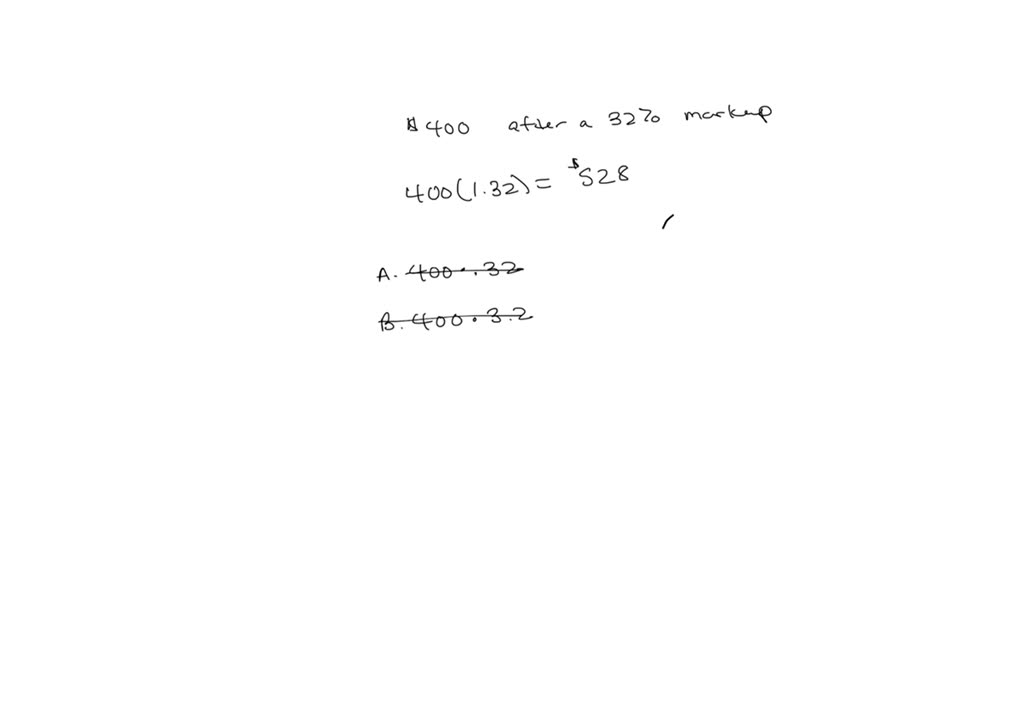 $400 after a 32% markup
400(1.32) = $528
A. 400 · .32
B. 400 · 3.2